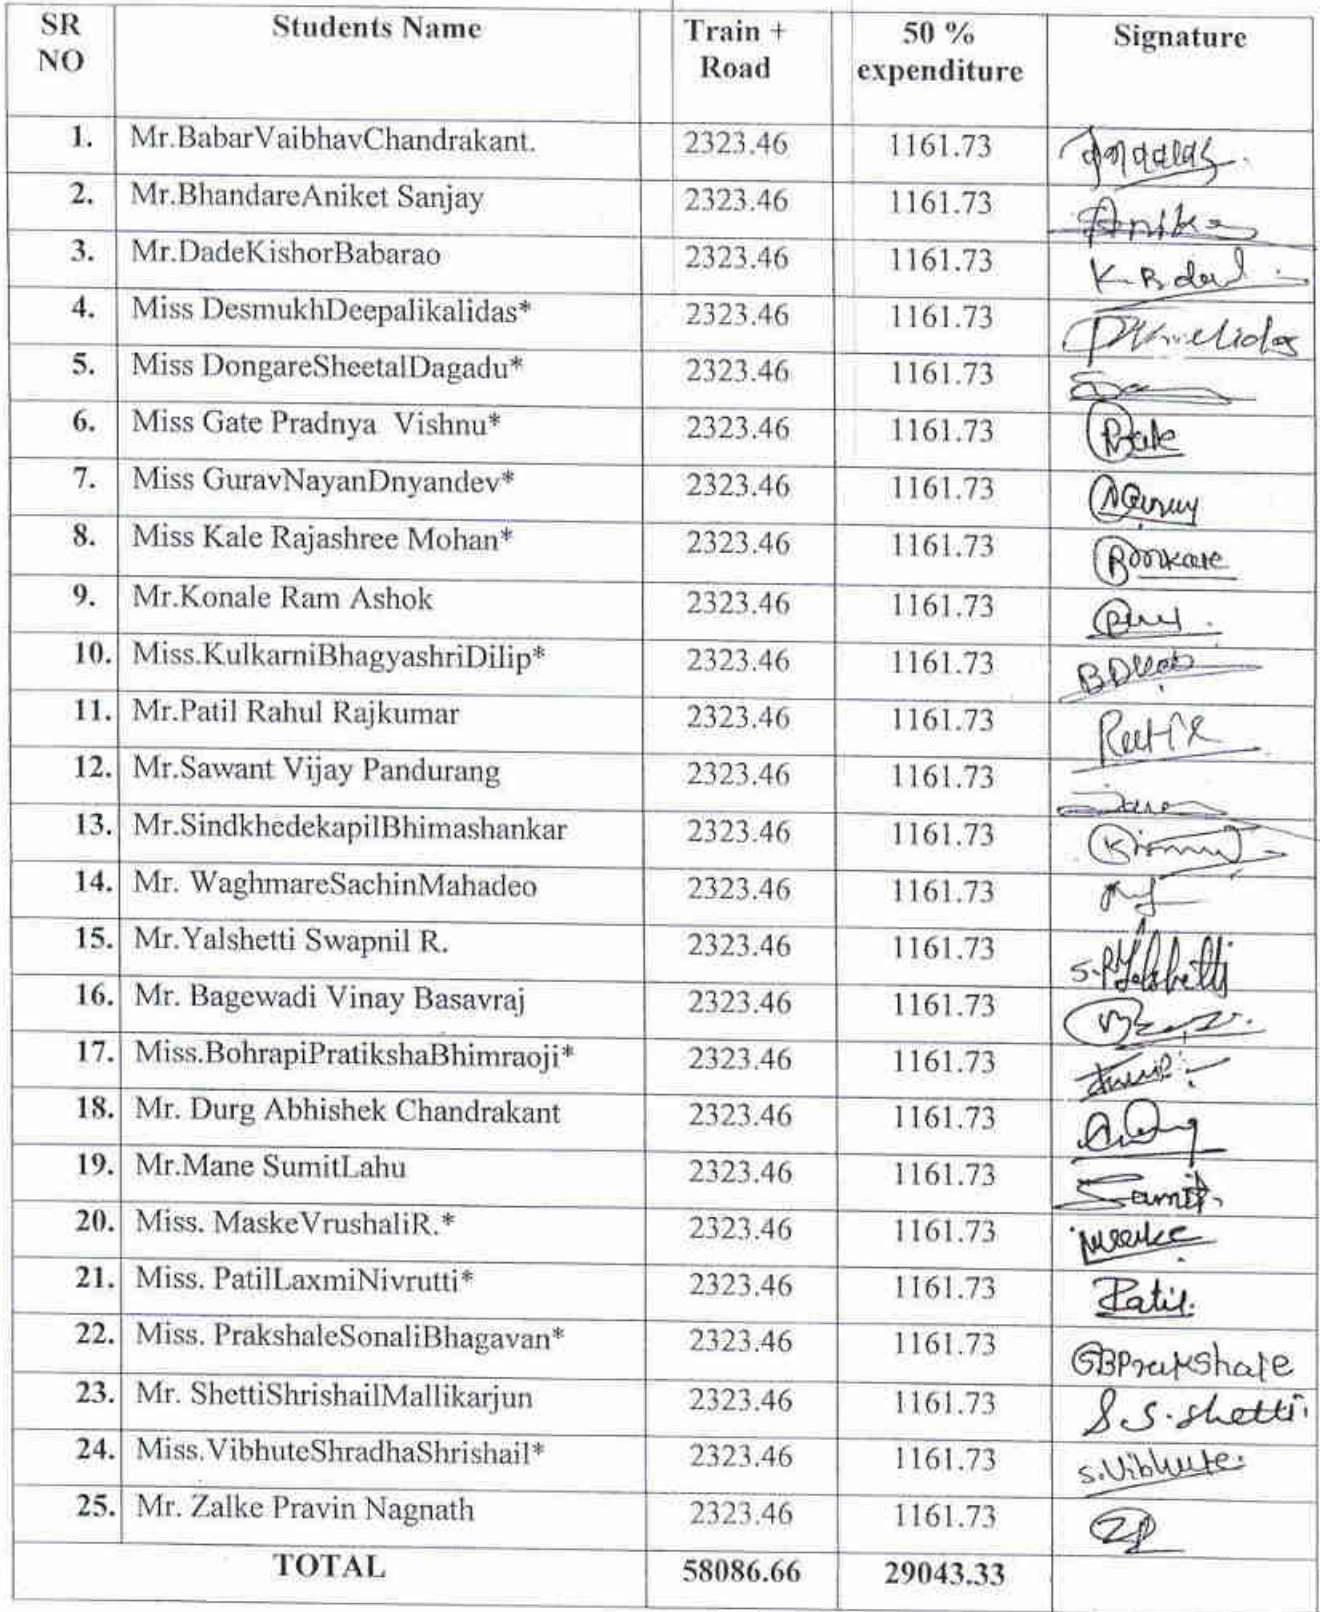 SR NO Students Name Train + Road 50 % expenditure Signature
1. Mr.BabarVaibhavChandrakant. 2323.46 1161.73
2. Mr.BhandareAniket Sanjay 2323.46 1161.73
3. Mr.DadeKishorBabarao 2323.46 1161.73
4. Miss DesmukhDeepalikalidas* 2323.46 1161.73
5. Miss DongareSheetalDagadu* 2323.46 1161.73
6. Miss Gate Pradnya Vishnu* 2323.46 1161.73
7. Miss GuravNayanDnyandev* 2323.46 1161.73
8. Miss Kale Rajashree Mohan* 2323.46 1161.73
9. Mr.Konale Ram Ashok 2323.46 1161.73
10. Miss.KulkarniBhagyashriDilip* 2323.46 1161.73
11. Mr.Patil Rahul Rajkumar 2323.46 1161.73
12. Mr.Sawant Vijay Pandurang 2323.46 1161.73
13. Mr.SindkhedekapilBhimashankar 2323.46 1161.73
14. Mr. WaghmareSachinMahadeo 2323.46 1161.73
15. Mr.Yalshetti Swapnil R. 2323.46 1161.73 S.R.Yalshetti
16. Mr. Bagewadi Vinay Basavraj 2323.46 1161.73
17. Miss.BohrapiPratikshaBhimraoji* 2323.46 1161.73
18. Mr. Durg Abhishek Chandrakant 2323.46 1161.73
19. Mr.Mane SumitLahu 2323.46 1161.73
20. Miss. MaskeVrushaliR.* 2323.46 1161.73
21. Miss. PatilLaxmiNivrutti* 2323.46 1161.73 Patil.
22. Miss. PrakshaleSonaliBhagavan* 2323.46 1161.73
23. Mr. ShettiShrishailMallikarjun 2323.46 1161.73 S.S.Shetti.
24. Miss.VibhuteShradhaShrishail* 2323.46 1161.73 S.Vibhute.
25. Mr. Zalke Pravin Nagnath 2323.46 1161.73
TOTAL 58086.66 29043.33